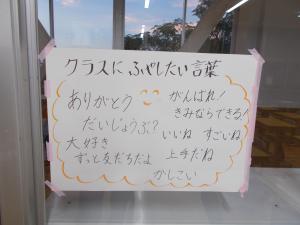 クラスに ふやしたい言葉
ありがとう
がんばれ!
きみならできる!
だいじょうぶ?
いいね すごいね
大好き
上手だね
ずっと友だちだよ
かしこい